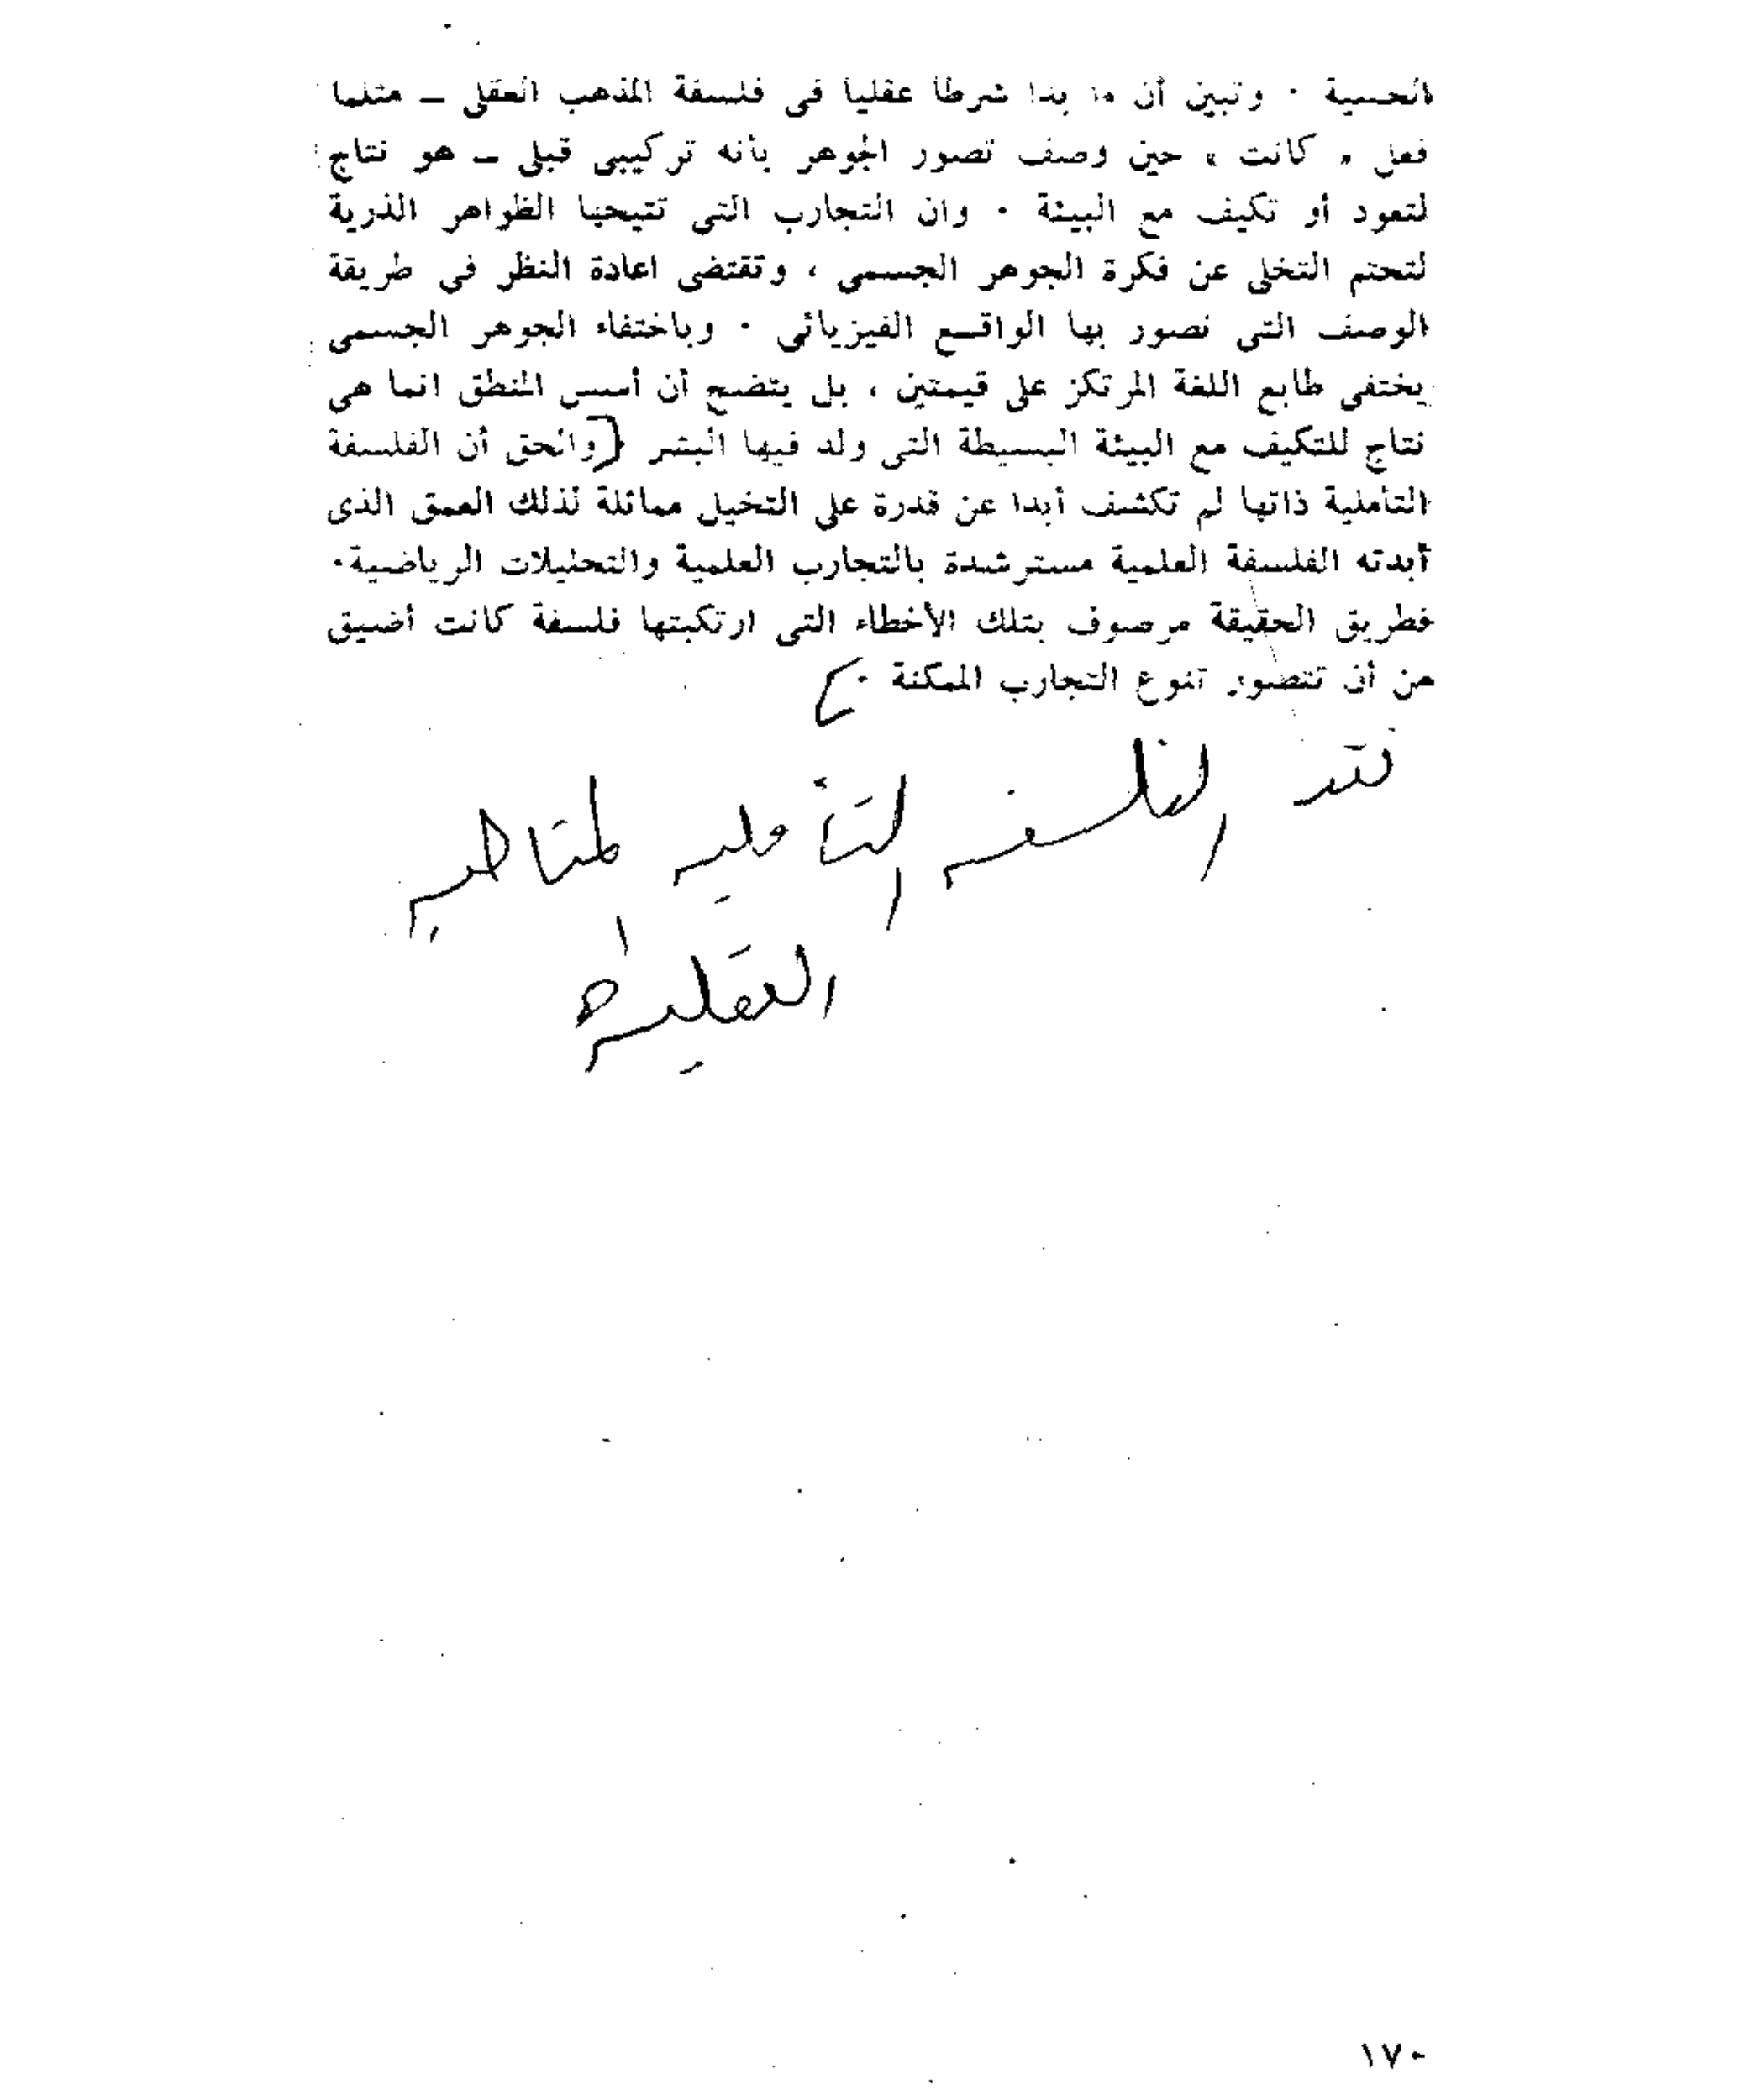 الحسية . وتبين أن ما بدا شرطا عقليا فى فلسفة المذهب العقلى ــ مثلما
فعل « كانت » حين وصف تصور الجوهر بأنه تركيبى قبلى ــ هو نتاج
لتعود أو تكيف مع البيئة . وان التجارب التى تتيحها الظواهر الذرية
لتحتم التخلى عن فكرة الجوهر الجسمى ، وتقتضى اعادة النظر فى طريقة
الوصف التى نصور بها الواقع الفيزيائى . وباختفاء الجوهر الجسمى
يختفى طابع اللغة المرتكز على قيمتين ، بل يتضح أن أسس المنطق انما هى
نتاج للتكيف مع البيئة البسيطة التى ولد فيها البشر [والحق أن الفلسفة
التأملية ذاتها لم تكشف أبدا عن قدرة على التخيل مماثلة لذلك العمق الذى
أبدته الفلسفة العلمية مسترشدة بالتجارب العلمية والتحليلات الرياضية.
فطريق الحقيقة مرصوف بتلك الأخطاء التى ارتكبتها فلسفة كانت أضيق
من أن تتصور تنوع التجارب الممكنة .]
نقد الفلسفه التأمليه
العقلية
١٧٠